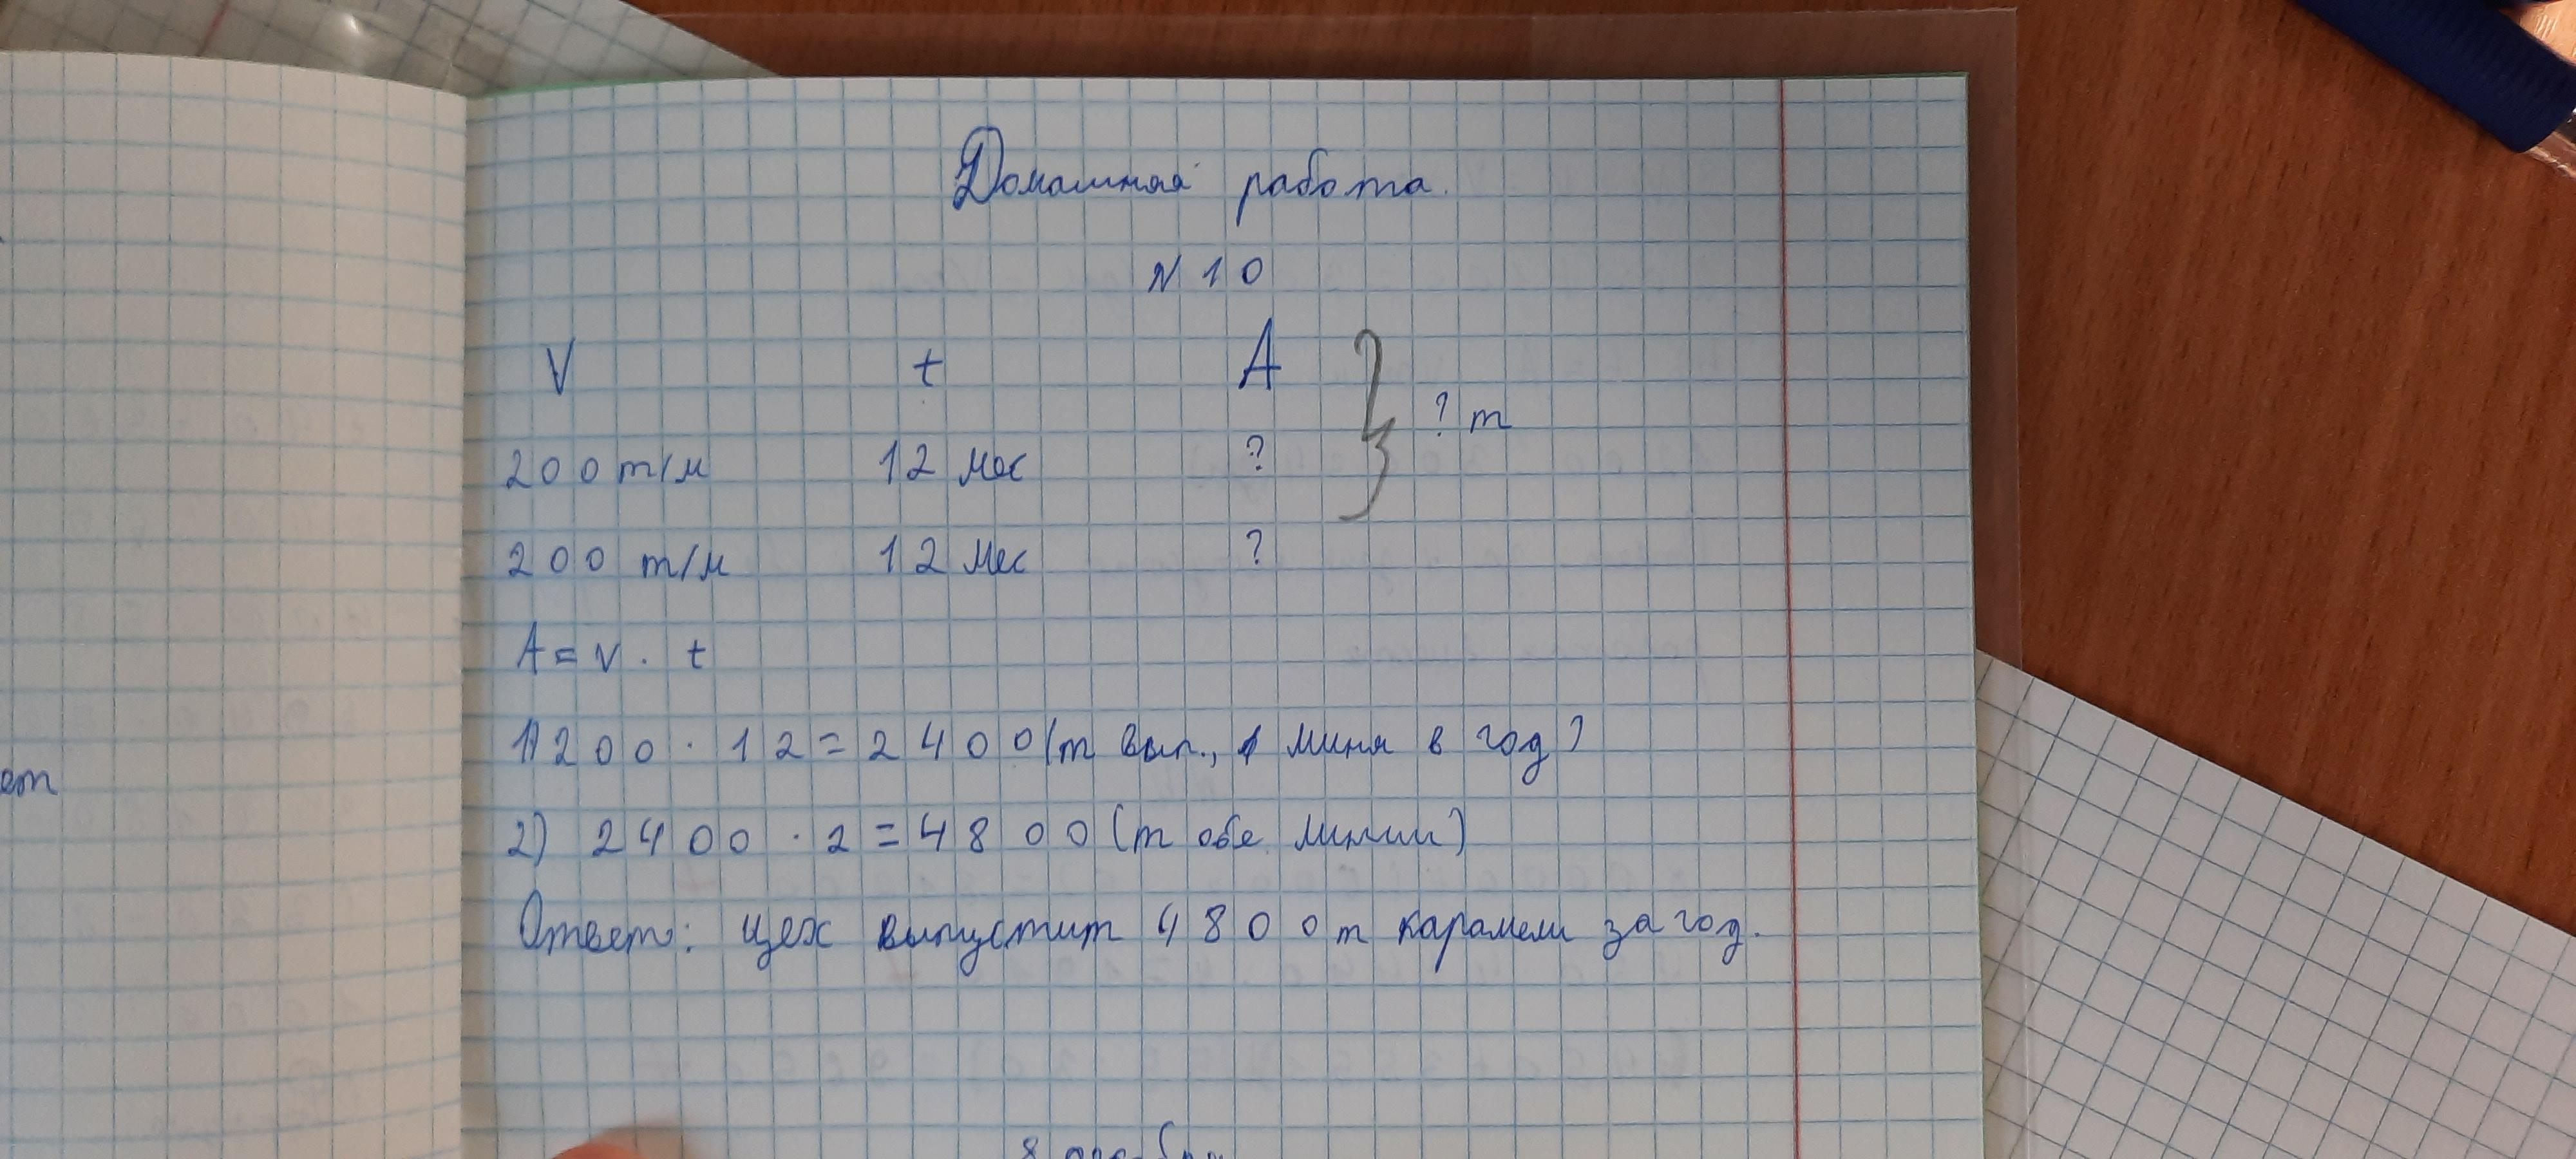 Домашняя работа.
N 10
V t A
? т
200 т/м 12 мес ?
200 т/м 12 мес ?
A = V · t
1) 200 · 12 = 2400 (т вып., 1 линя в год)
ет
2) 2400 · 2 = 4800 (т обе линии)
Ответ: цех выпустит 4800 т карамели за год.